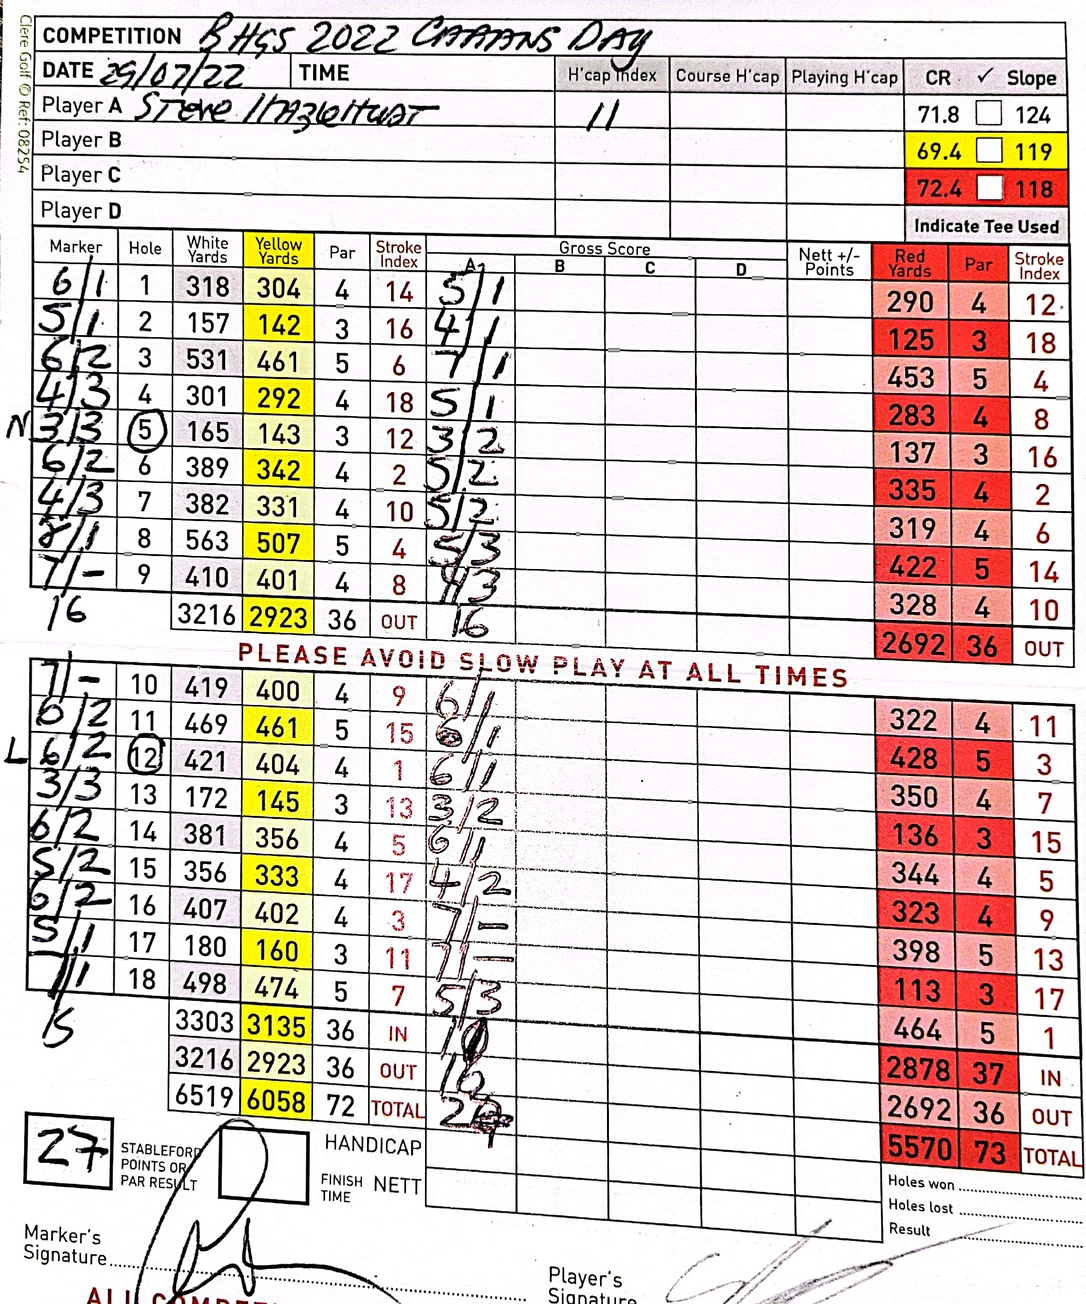 Clere Golf © Ref: 08254
COMPETITION BHGS 2022 CAAANS DAY
DATE 29/07/22 TIME H'cap Index Course H'cap Playing H'cap CR ✓ Slope
Player A Steve 11 71.8 124
Player B 69.4 119
Player C 72.4 118
Player D Indicate Tee Used
Marker Hole White Yards Yellow Yards Par Stroke Index Gross Score A B C D Nett +/- Points Red Yards Par Stroke Index
6/1 1 318 304 4 14 5/1 290 4 12
5/1 2 157 142 3 16 4/1 125 3 18
6/2 3 531 461 5 6 7/1 453 5 4
4/3 4 301 292 4 18 5/1 283 4 8
N 3/3 5 165 143 3 12 3/2 137 3 16
6/2 6 389 342 4 2 5/2 335 4 2
4/3 7 382 331 4 10 5/2 319 4 6
8/1 8 563 507 5 4 5/3 422 5 14
7/- 9 410 401 4 8 4/3 328 4 10
16 3216 2923 36 OUT 16 2692 36 OUT
PLEASE AVOID SLOW PLAY AT ALL TIMES
7/- 10 419 400 4 9 6/1 322 4 11
6/2 11 469 461 5 15 6/1 428 5 3
L 6/2 12 421 404 4 1 6/1 350 4 7
3/3 13 172 145 3 13 3/2 136 3 15
6/2 14 381 356 4 5 6/1 344 4 5
5/2 15 356 333 4 17 4/2 323 4 9
6/2 16 407 402 4 3 7/- 398 5 13
5/1 17 180 160 3 11 7/- 113 3 17
/1 18 498 474 5 7 5/3 464 5 1
15 3303 3135 36 IN 2878 37 IN
3216 2923 36 OUT 16 2692 36 OUT
6519 6058 72 TOTAL 5570 73 TOTAL
27 STABLEFORD POINTS OR PAR RESULT HANDICAP
FINISH TIME NETT
Holes won
Holes lost
Result
Marker's Signature
Player's Signature